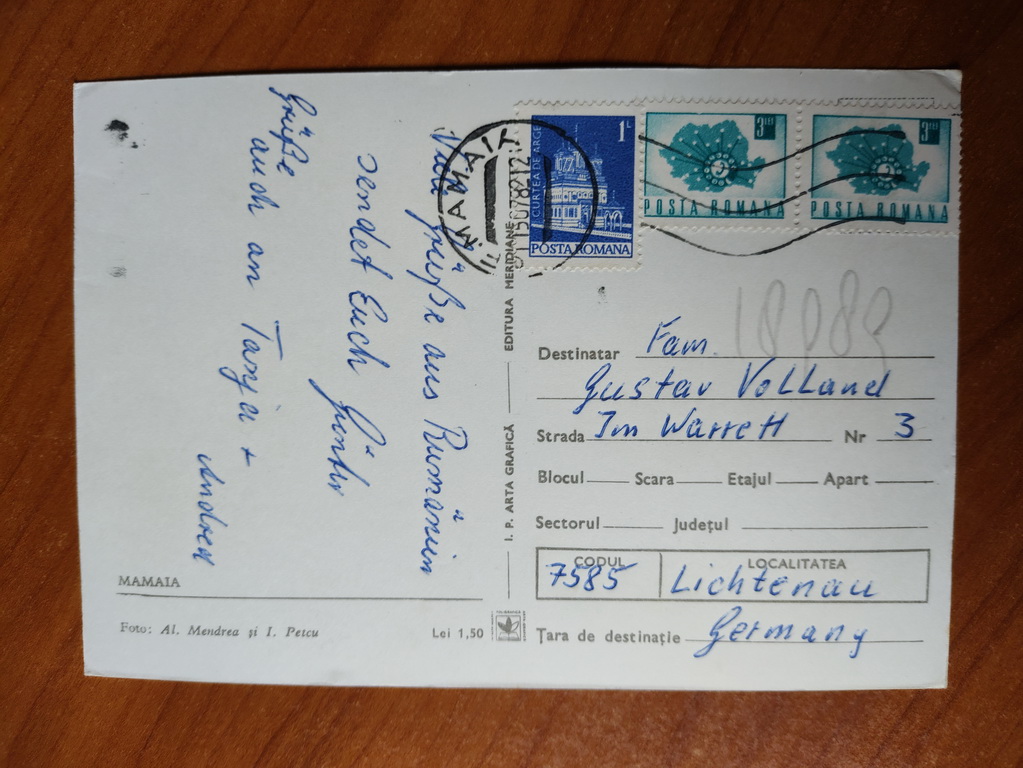 Viele Grüße aus Rumänien
sendet Euch Günter
Grüße
auch an Tanja +
Andrea
MAMAIA
Foto: Al. Mendrea și I. Petcu
Lei 1,50
I. P. ARTA GRAFICĂ
EDITURA MERIDIANE
MAMAIA
15078212
1L
CURTEA DE ARGE
POSTA ROMANA
3 LEI
POSTA ROMANA
3 LEI
POSTA ROMANA
Destinatar Fam.
Gustav Volland
Strada Im Warrett Nr 3
Blocul Scara Etajul Apart
Sectorul Județul
CODUL LOCALITATEA
7585 Lichtenau
Țara de destinație Germany